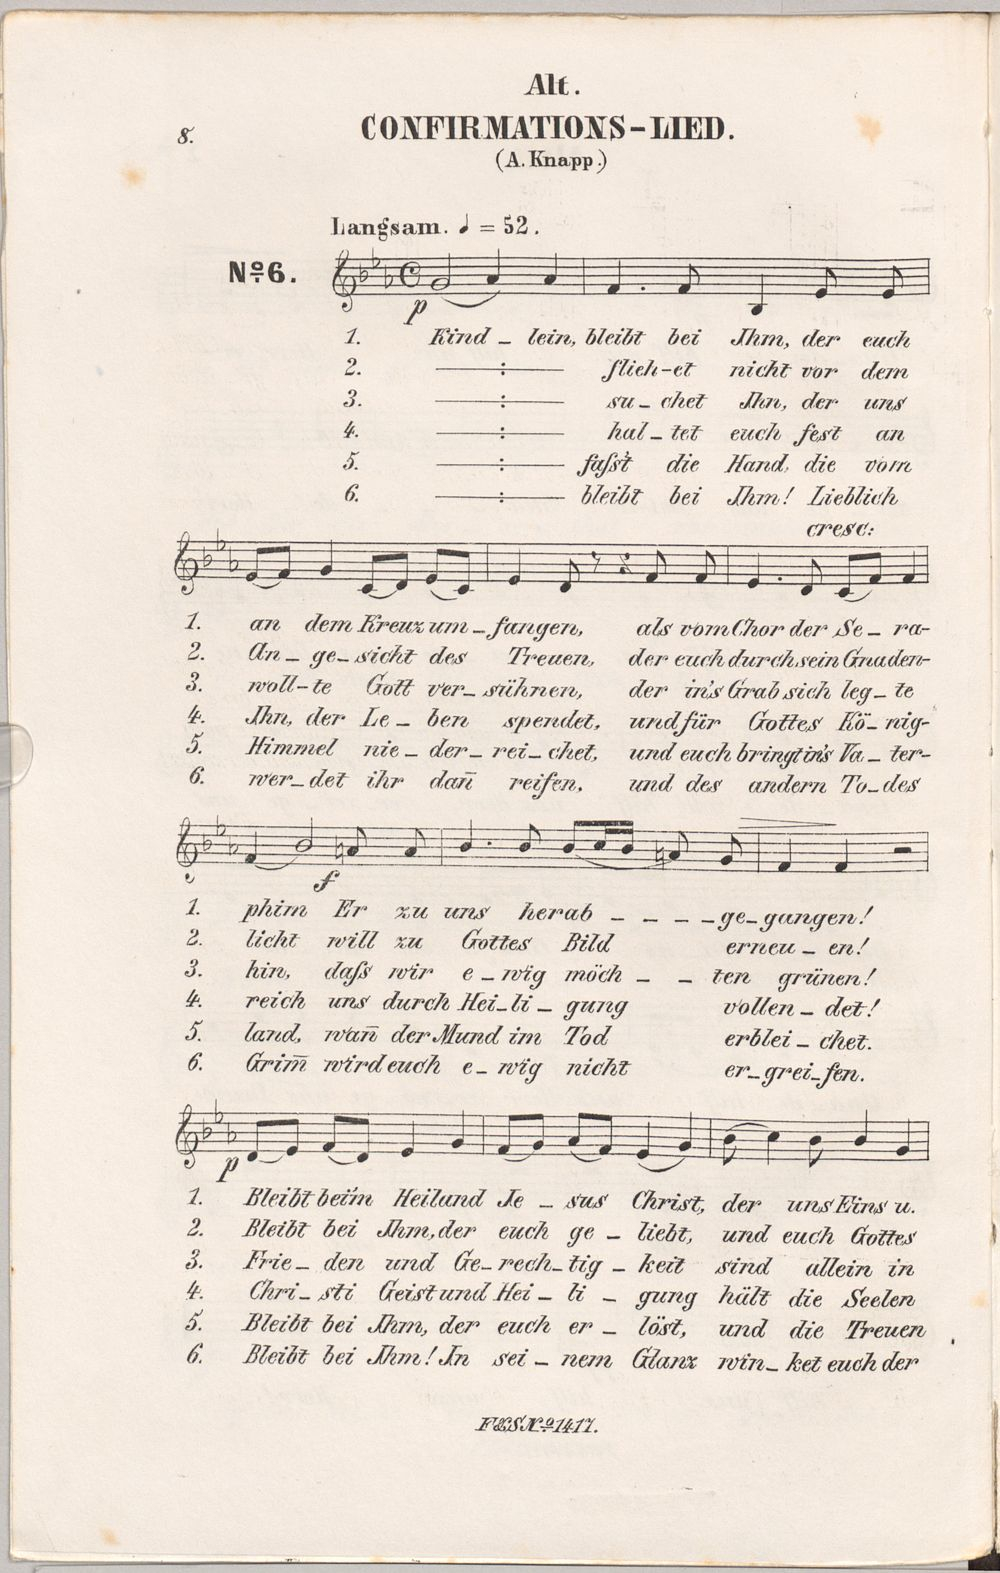 Alt.
8. CONFIRMATIONS-LIED.
(A. Knapp.)
Langsam. ♩ = 52.
Nº 6.
p
1. Kind_lein, bleibt bei Ihm, der euch
2. —:— flieh-et nicht vor dem
3. —:— su_chet Ihn, der uns
4. —:— hal_tet euch fest an
5. —:— faſs't die Hand, die vom
6. —:— bleibt bei Ihm! Lieblich
cresc:
1. an dem Kreuz um_fangen, als vom Chor der Se_ra-
2. An_ge_sicht des Treuen, der euch durch sein Gnaden-
3. woll-te Gott ver_sühnen, der in's Grab sich leg_te
4. Ihn, der Le_ben spendet, und für Gottes Kö_nig-
5. Himmel nie_der_rei_chet, und euch bringt in's Va_ter-
6. wer_det ihr dañ reifen, und des andern To_des
f
1. phim Er zu uns herab _ _ _ _ ge_gangen!
2. licht will zu Gottes Bild erneu_en!
3. hin, daſs wir e_wig möch _ _ ten grünen!
4. reich uns durch Hei_li_gung vollen_det!
5. land, wañ der Mund im Tod erblei_chet.
6. Grim̄ wird euch e_wig nicht er_grei_fen.
p
1. Bleibt beim Heiland Je_sus Christ, der uns Eins u.
2. Bleibt bei Ihm, der euch ge_liebt, und euch Gottes
3. Frie_den und Ge_rech_tig_keit sind allein in
4. Chri_sti Geist und Hei_li_gung hält die Seelen
5. Bleibt bei Ihm, der euch er_löst, und die Treuen
6. Bleibt bei Ihm! In sei_nem Glanz win_ket euch der
F&S Nº 1417.